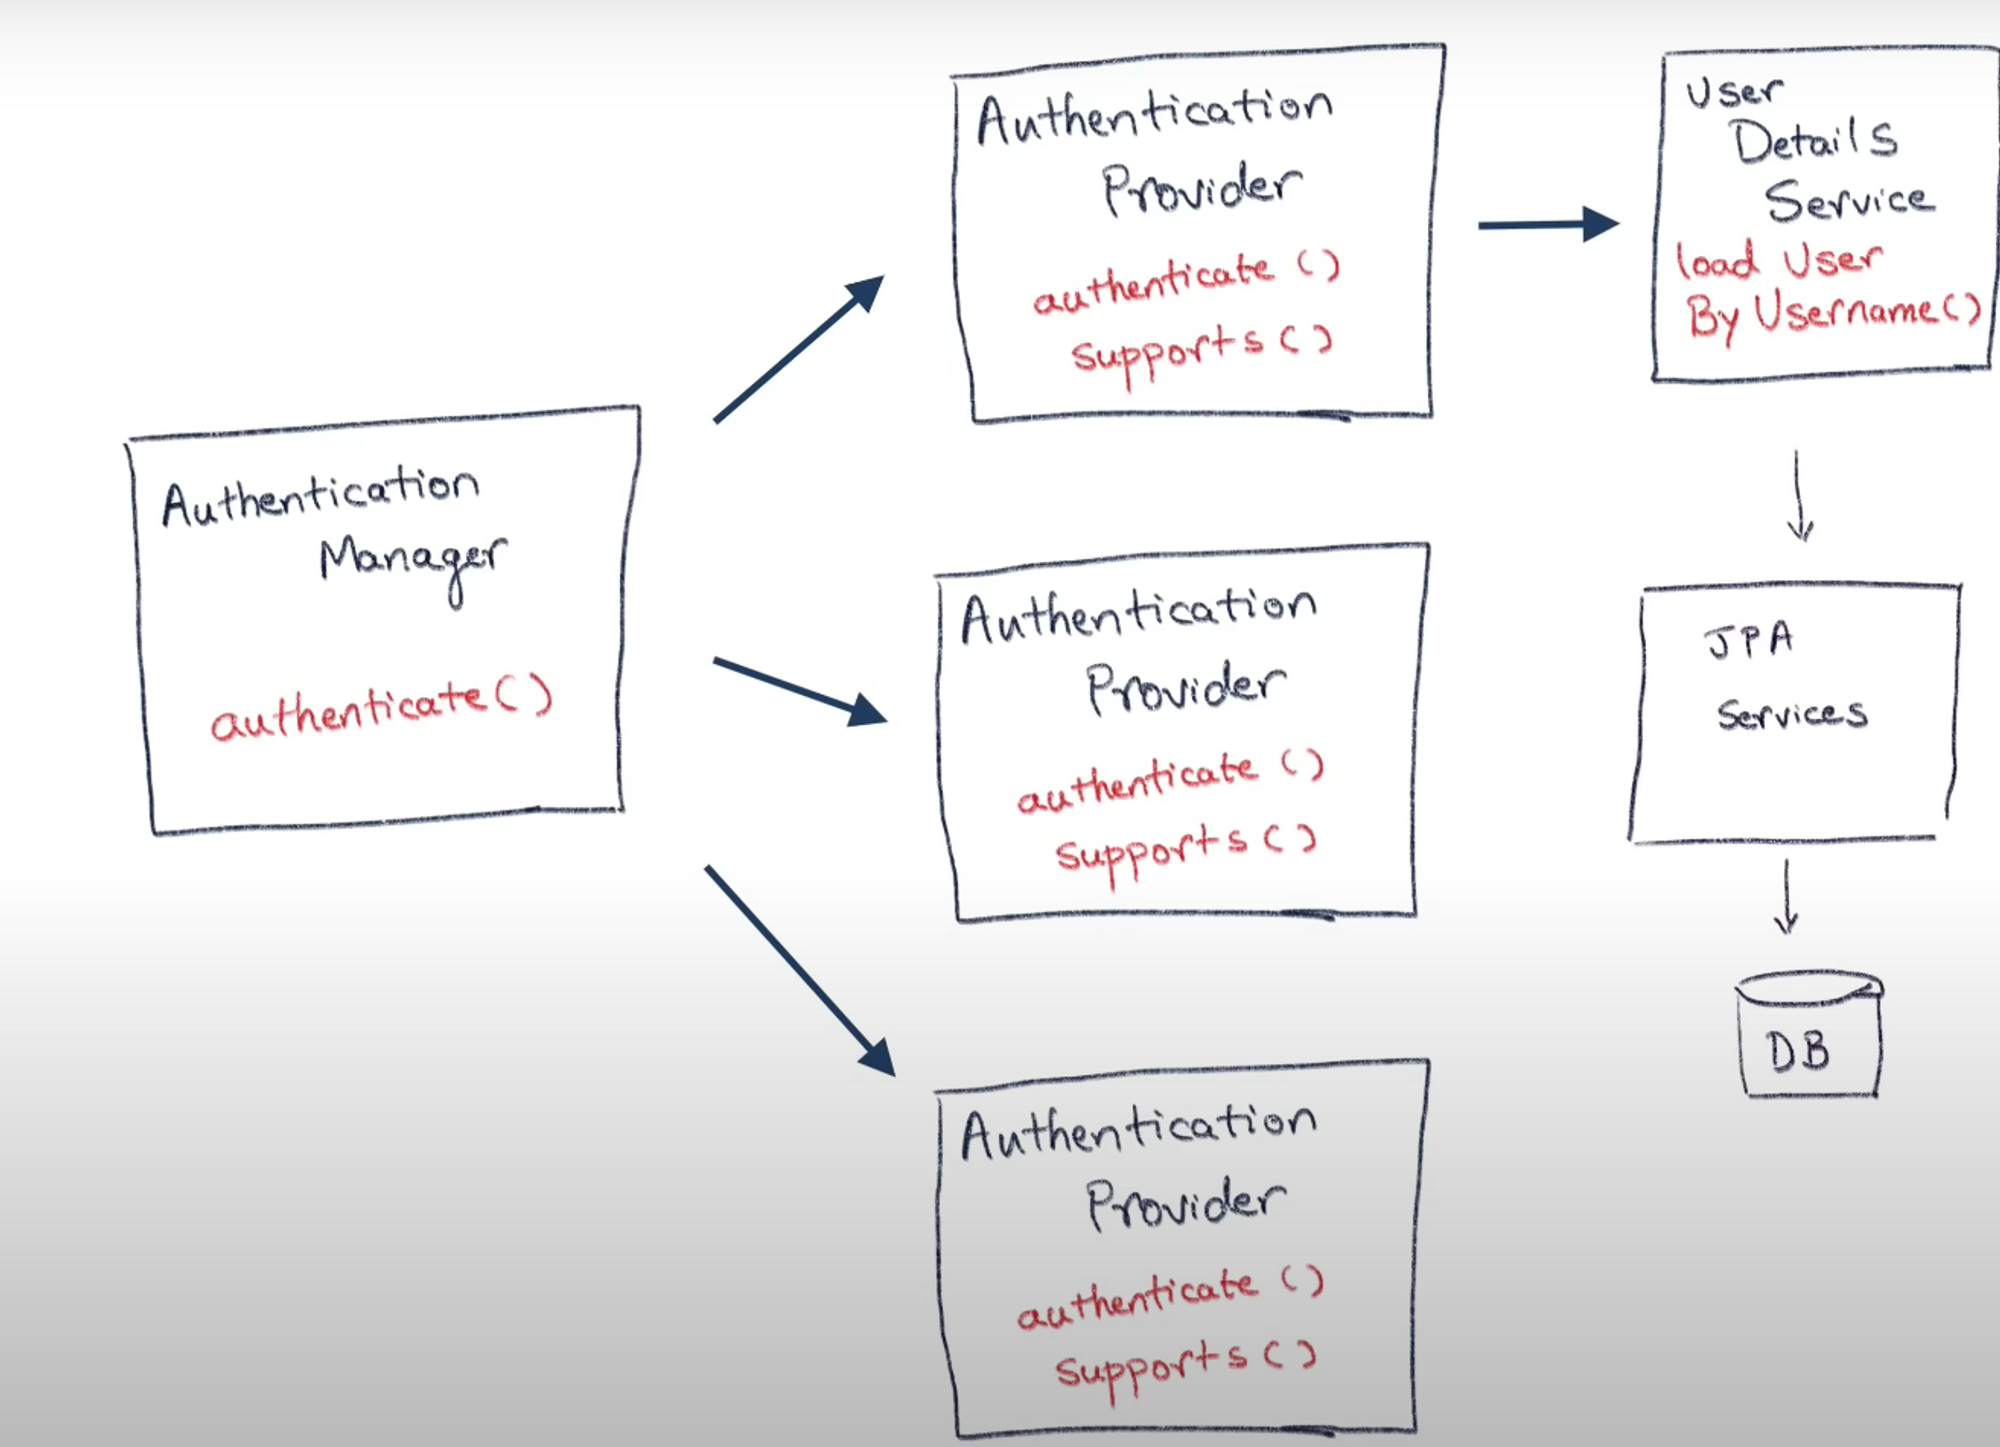 Authentication
Manager
authenticate()
Authentication
Provider
authenticate ()
supports ()
Authentication
Provider
authenticate ()
supports ()
Authentication
Provider
authenticate ()
supports ()
User
Details
Service
load User
By Username()
JPA
Services
DB